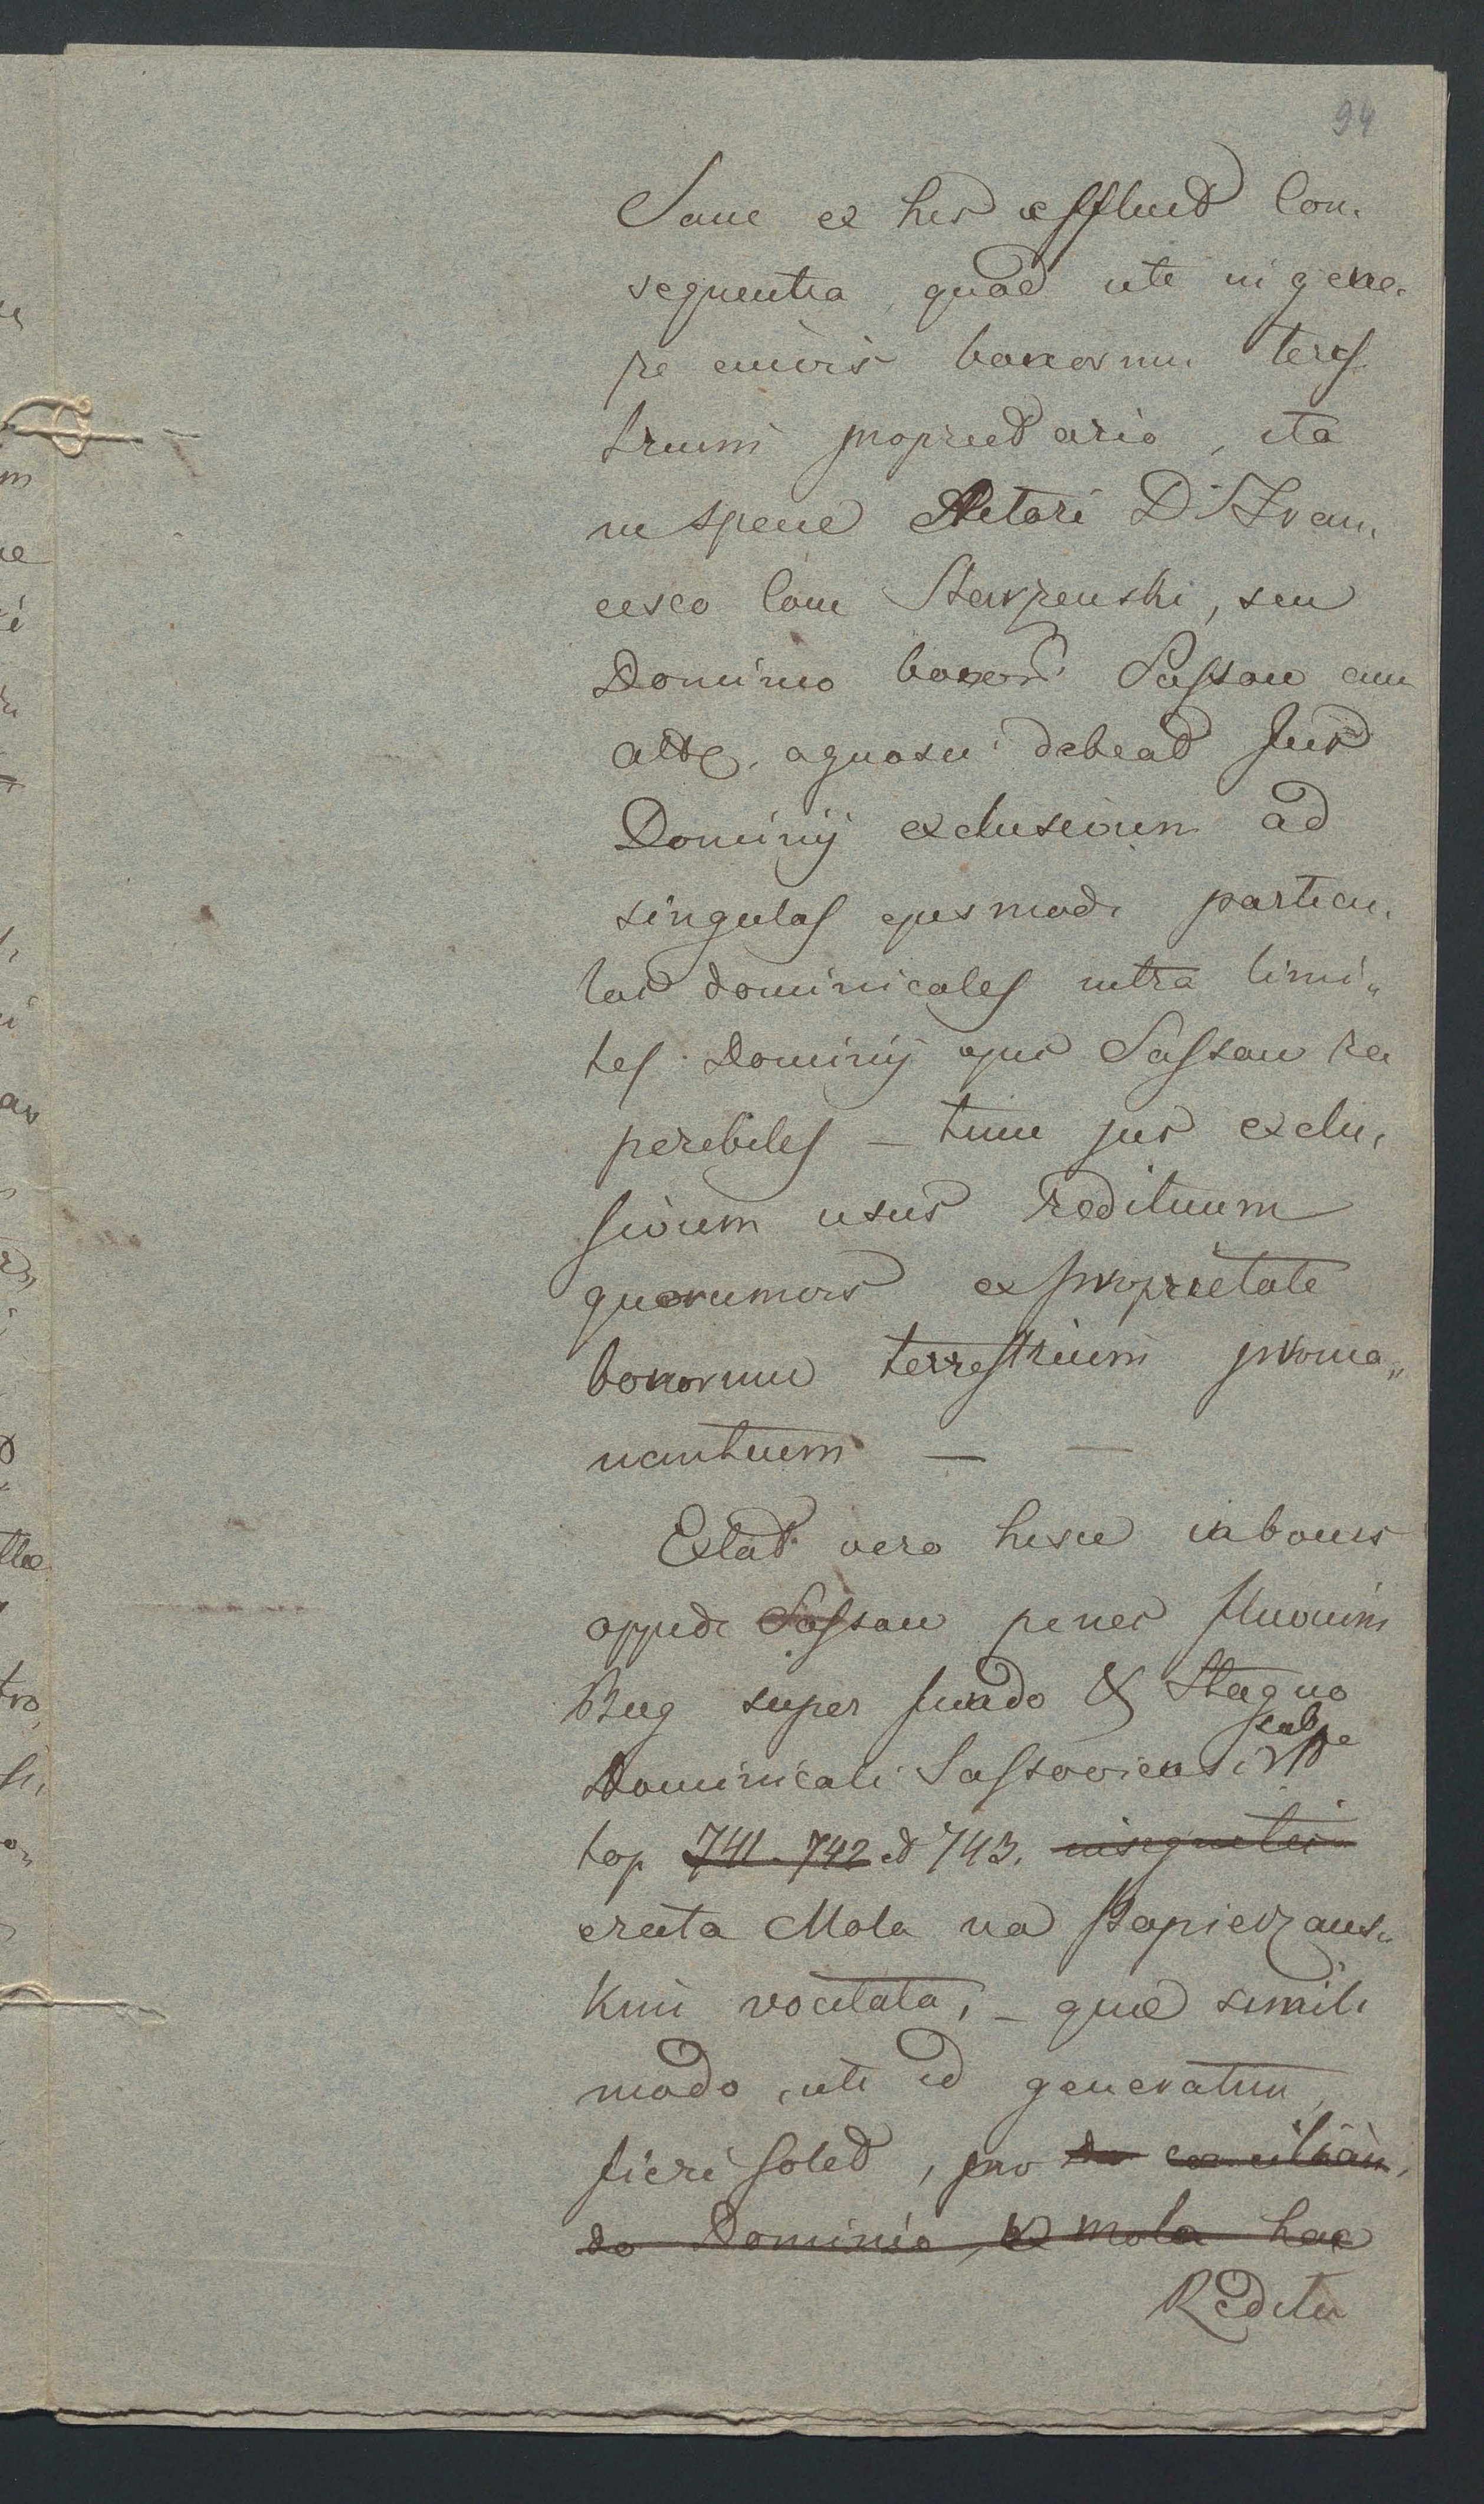 94
Sane ex his effluit Con-
sequentia, quod uti in gene-
re cuivis bonorum terres
trium proprietario, ita
in specie Actori D. Fran-
cisco Com Starzenski, seu
Domino bonor. Sassow cum
att. debeat Jus
Dominij exclusivum ad
singulas ejusmodi particu-
las dominicales intra limi„
tes Dominij ejus Sassow re
peribiles – tum jus exclu-
sivum usus redituum
quorumvis ex proprietate
bonorum terrestrium proma„
nantium — —
Extat vero hisce in bonis
oppidi Sassow penes fluvium
Bug super fundo & Stagno
Dominicali Sassoviensi sub
top 741. 742 et 743.
erecta Mola na Papierzans-
kim vocitata, – quae simili
modo, uti id generatim
fieri solet, pro
do Dominio, ex mola hac
Reditu